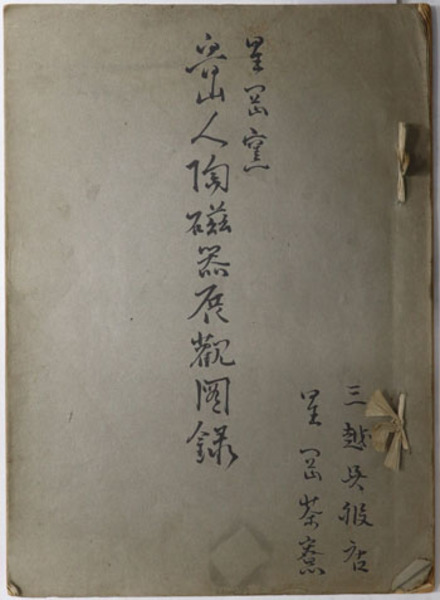 星岡窯
魯山人陶磁器展觀圖錄
三越呉服店
星岡茶寮